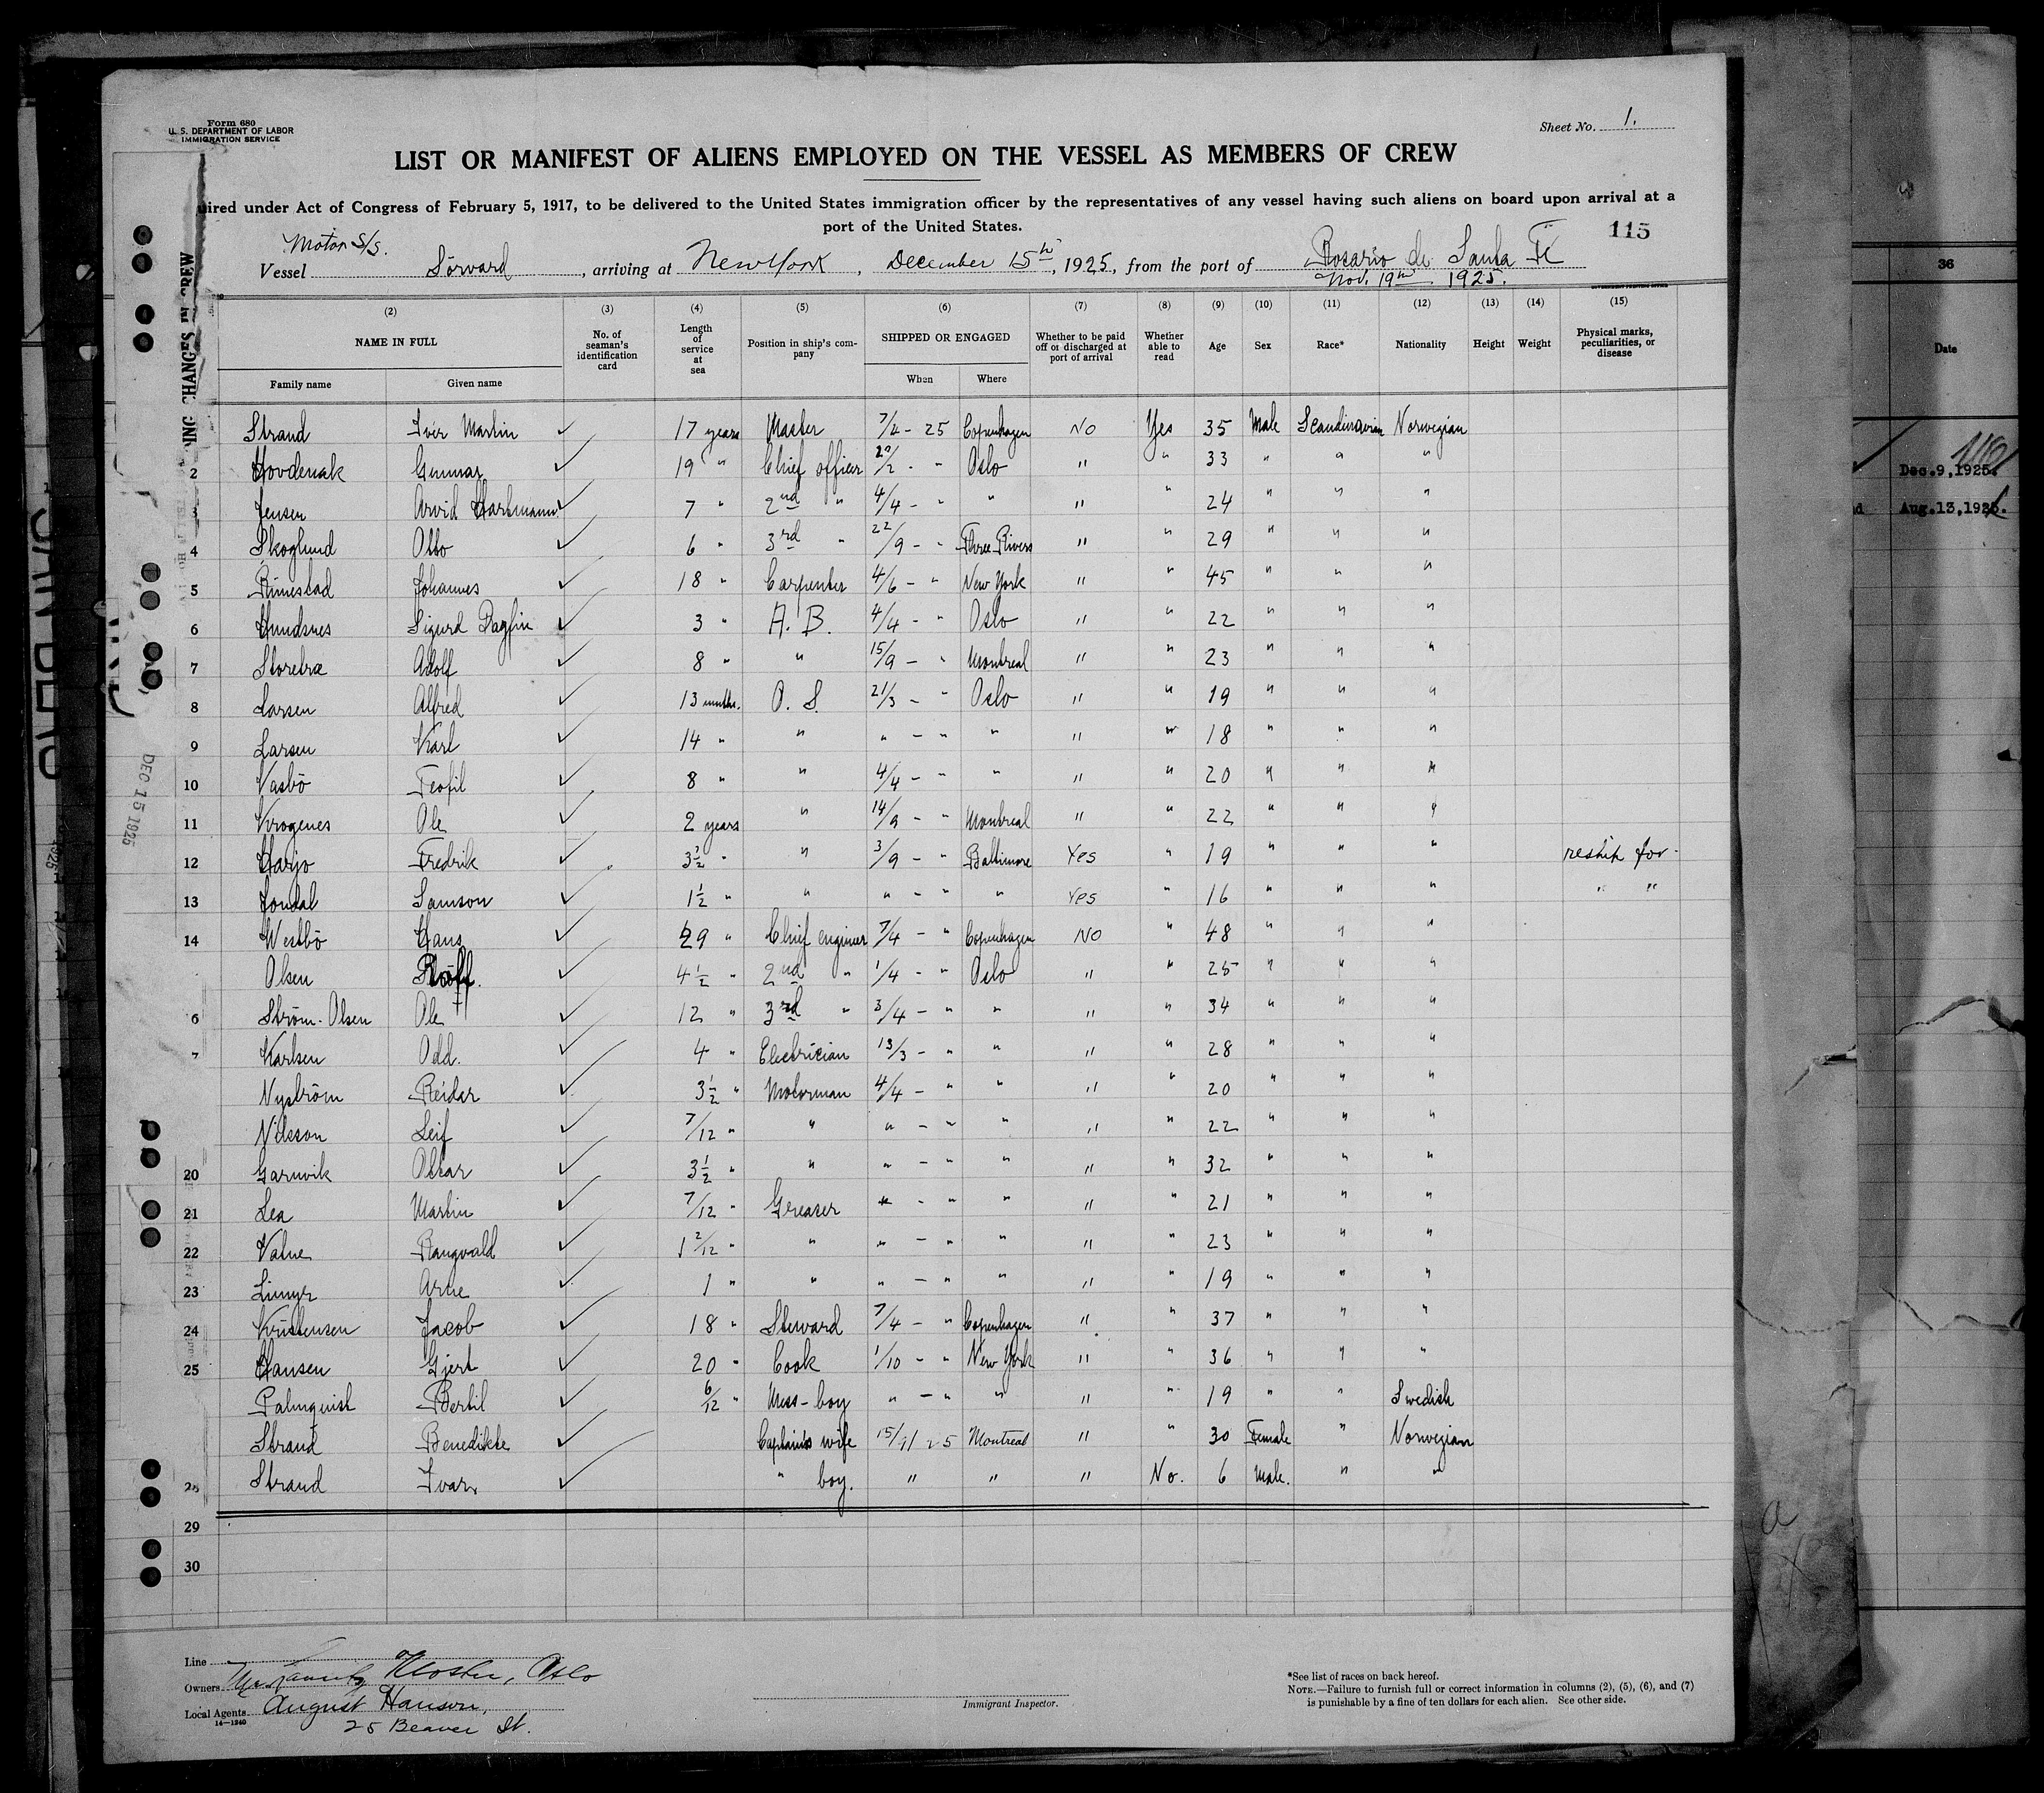 Form 680
U. S. DEPARTMENT OF LABOR
IMMIGRATION SERVICE
Sheet No. 1.
LIST OR MANIFEST OF ALIENS EMPLOYED ON THE VESSEL AS MEMBERS OF CREW
uired under Act of Congress of February 5, 1917, to be delivered to the United States immigration officer by the representatives of any vessel having such aliens on board upon arrival at a
port of the United States.
115
Motor S/S.
Vessel Sörvard, arriving at New York, December 15th, 1925, from the port of Rosario de Santa Fe
Nov. 19th 1925.
(2) (3) (4) (5) (6) (7) (8) (9) (10) (11) (12) (13) (14) (15)
NAME IN FULL No. of seaman's identification card Length of service at sea Position in ship's company SHIPPED OR ENGAGED Whether to be paid off or discharged at port of arrival Whether able to read Age Sex Race* Nationality Height Weight Physical marks, peculiarities, or disease
Family name Given name When Where
Strand Iver Martin ✓ 17 years Master 7/4 - 25 Copenhagen No Yes 35 Male Scandinavian Norwegian
2 Hovdenak Gunnar ✓ 19 " Chief officer 20/2 - " Oslo " " 33 " " "
3 Jensen Arvid Hartmann ✓ 7 " 2nd " 4/4 - " " " 24 " " "
4 Skoglund Otto ✓ 6 " 3rd " 22/9 - " Three Rivers " " 29 " " "
5 Rimestad Johannes ✓ 18 " Carpenter 4/6 - " New York " " 45 " " "
6 Hundsnes Sigurd Dagfin ✓ 3 " A. B. 4/4 - " Oslo " " 22 " " "
7 Storebræ Adolf ✓ 8 " " 15/9 - " Montreal " " 23 " " "
8 Larsen Alfred ✓ 13 months. O. S. 21/3 - " Oslo " " 19 " " "
9 Larsen Karl ✓ 14 " " " - " " " " 18 " " "
10 Vasbö Teofil ✓ 8 " " 4/4 - " " " " 20 " " "
11 Krogenes Ole ✓ 2 years " 14/9 - " Montreal " " 22 " " "
12 Harjo Fredrik ✓ 3 1/2 " " 3/9 - " Baltimore Yes " 19 " " " reship for
13 Jondal Samson ✓ 1 1/2 " " " - " " Yes " 16 " " " " "
14 Westbö Hans ✓ 29 " Chief engineer 7/4 - " Copenhagen No " 48 " " "
Olsen Rolf. ✓ 4 1/2 " 2nd " 1/4 - " Oslo " " 25 " " "
6 Ström-Olsen Ole ✓ 12 " 3rd " 3/4 - " " " " 34 " " "
7 Karlsen Odd. ✓ 4 " Electrician 13/3 - " " " " 28 " " "
Nyström Reidar ✓ 3 1/2 " Motorman 4/4 - " " " " 20 " " "
Nilsson Leif ✓ 7/12 " " " - " " " " 22 " " "
20 Garnvik Oscar ✓ 3 1/2 " " " - " " " " 32 " " "
21 Lea Martin ✓ 7/12 " Greaser " - " " " " 21 " " "
22 Valne Rangvald ✓ 1 2/12 " " " - " " " " 23 " " "
23 Limyr Arne ✓ 1 " " " - " " " " 19 " " "
24 Kristensen Jacob ✓ 18 " Steward 7/4 - " Copenhagen " " 37 " " "
25 Hansen Gjert ✓ 20 " Cook 1/10 - " New York " " 36 " " "
Palmquist Bertil ✓ 6/12 " Mess-boy " - " " " " 19 " " Swedish
Strand Benedikte ✓ Captain's wife 15/9/25 Montreal " " 30 Female " Norwegian
28 Strand Ivar ✓ " boy. " " " No. 6 Male. " "
29
30
Line
Owners Kloster, Oslo
Local Agents August Hanson,
14—1240
25 Beaver St.
Immigrant Inspector.
*See list of races on back hereof.
NOTE.—Failure to furnish full or correct information in columns (2), (5), (6), and (7)
is punishable by a fine of ten dollars for each alien. See other side.
DEC 15 1925
36
Date
Dec.9,1925.
Aug.13,192